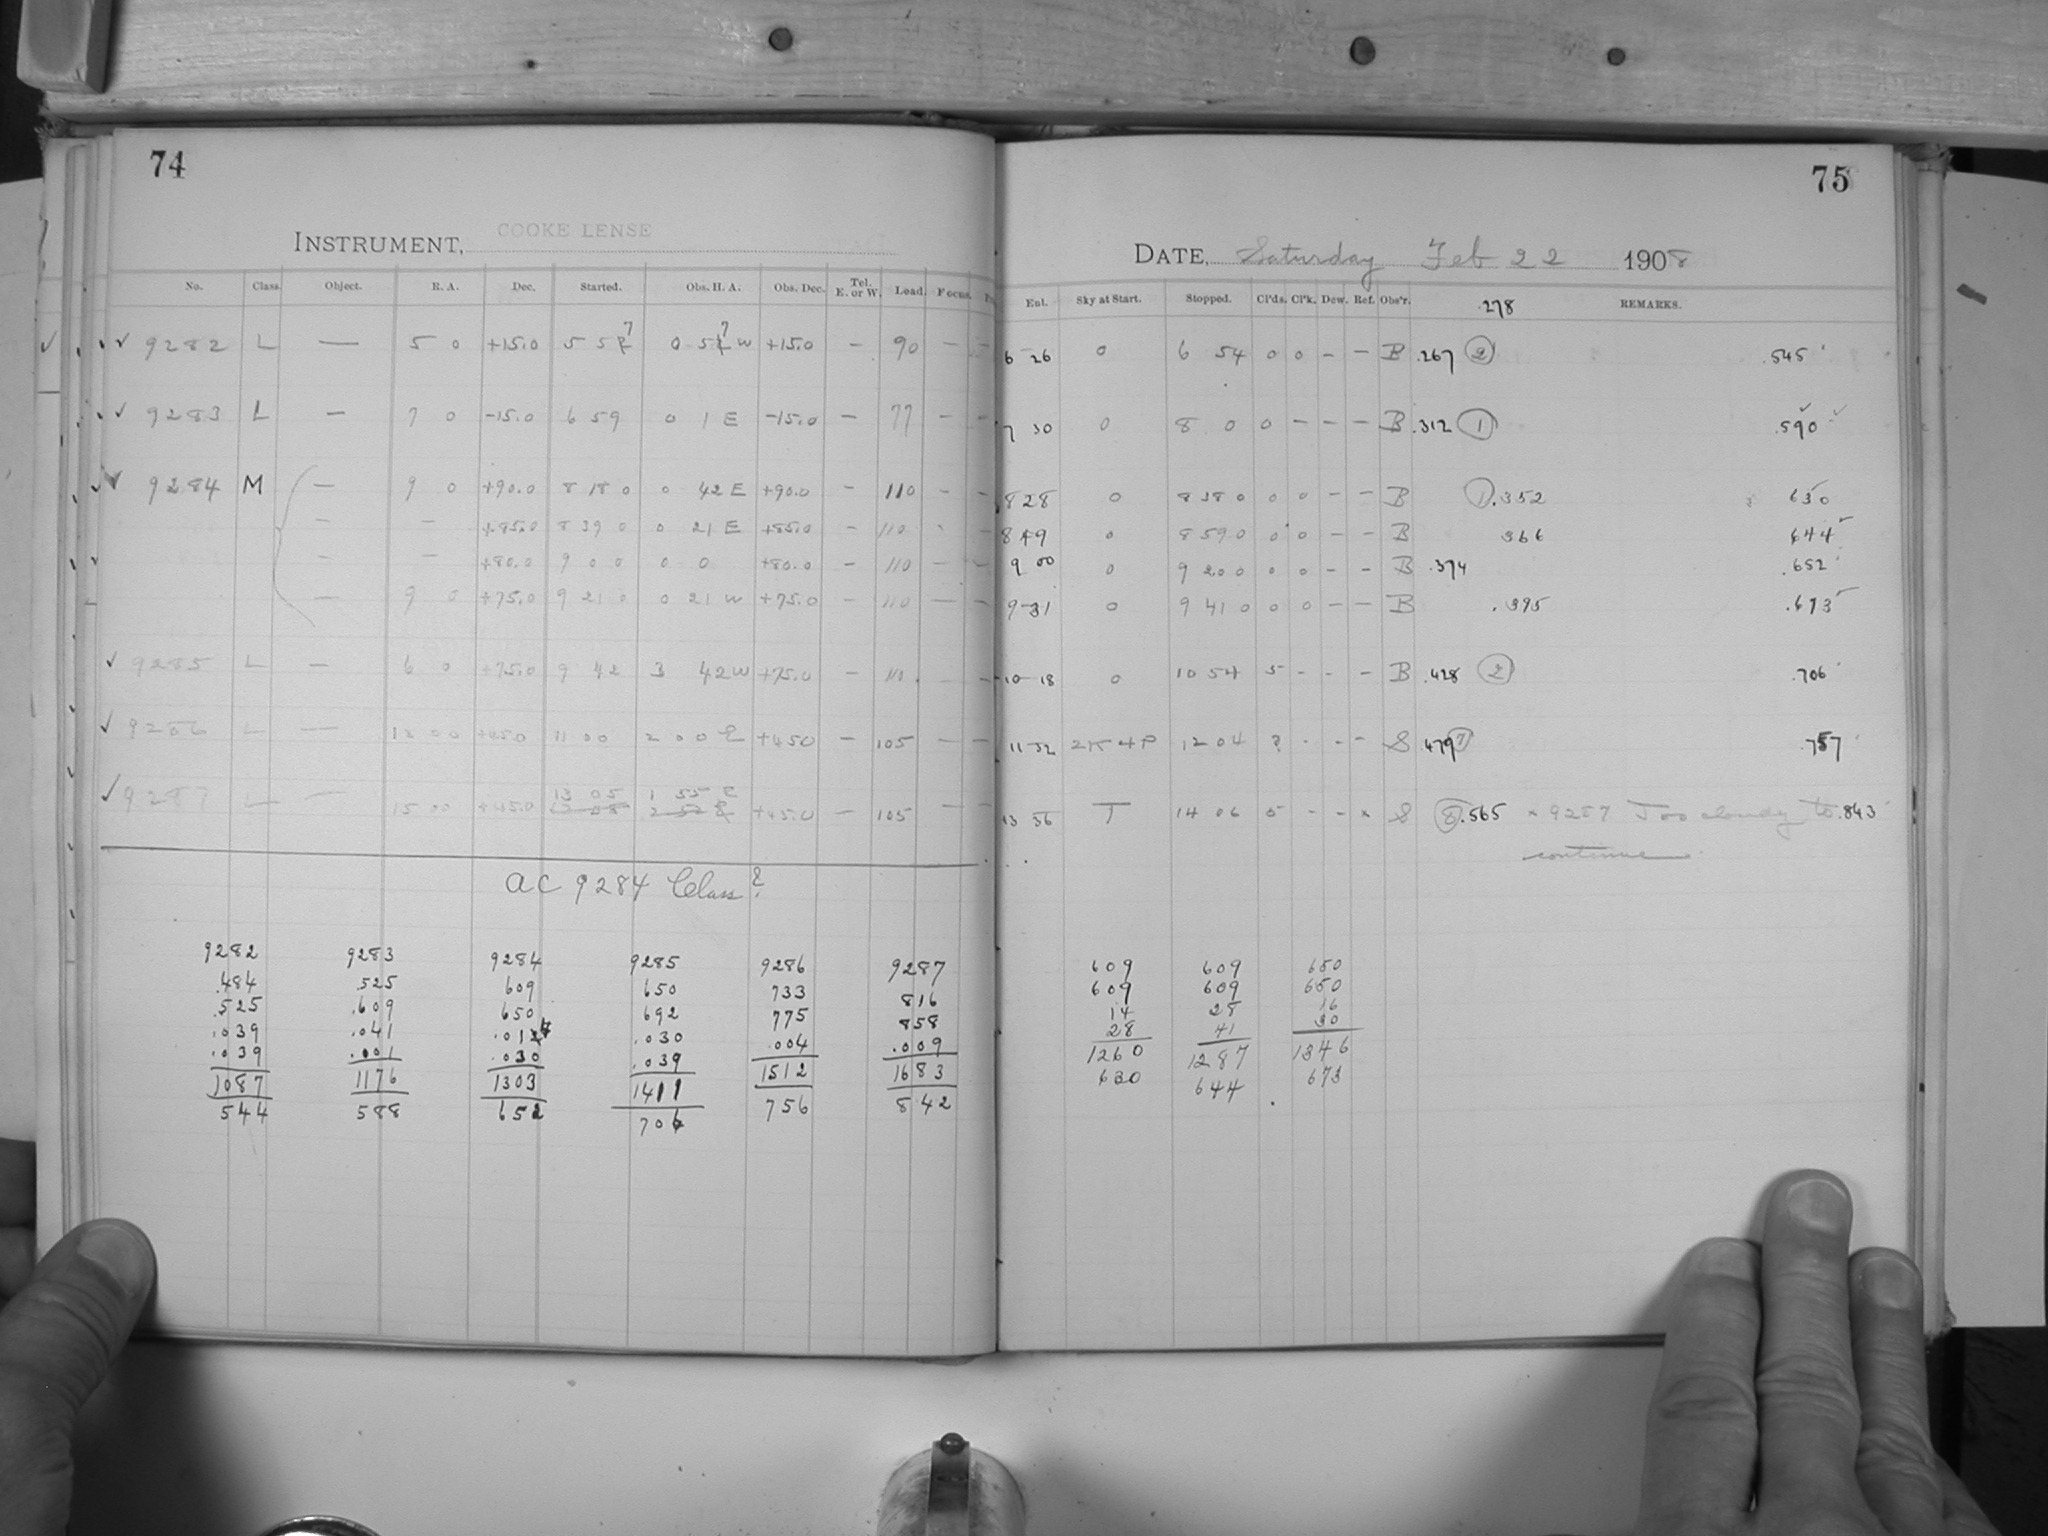 74
COOKE LENSE
INSTRUMENT,
No. Class. Object. R. A. Dec. Started. Obs. H. A. Obs. Dec. Tel. E. or W. Load. Focus.
9282 L — 5 0 +15.0 5 57 0 57 W +15.0 — 90 — —
9283 L — 7 0 -15.0 6 59 0 1 E -15.0 — 77 — —
9284 M — 9 0 +90.0 8 18 0 0 42 E +90.0 — 110 — —
— — +85.0 8 39 0 0 21 E +85.0 — 110
— — +80.0 9 0 0 0 0 +80.0 — 110 — —
— 9 0 +75.0 9 21 0 0 21 W +75.0 — 110 — —
9285 L — 6 0 +75.0 9 42 3 42 W +75.0 — 110 —
9286 L — 13 00 +45.0 11 00 2 00 E +45.0 — 105 — —
9287 L — 15 00 +45.0 13 05 1 55 E +45.0 — 105 — —
AC 9284 Class?
9282 9283 9284 9285 9286 9287
.484 .525 609 650 733 816
.525 .609 650 692 775 858
.039 .041 .014 .030 .004 .009
.039 .001 .030 .039
1087 1176 1303 1411 1512 1683
544 588 652 706 756 842
75
DATE, Saturday Feb 22 1908
Ent. Sky at Start. Stopped. Cl'ds. Cl'k. Dew. Ref. Obs'r. .278 REMARKS.
6 26 0 6 54 0 0 - - B .267 (2) .545
7 30 0 8 0 0 - - - B .312 (1) .590
8 28 0 8 38 0 0 0 - - B (1) .352 630
8 49 0 8 59 0 0 0 - - B 366 644
9 00 0 9 20 0 0 0 - - B .374 .652
9 31 0 9 41 0 0 0 - - B .395 .673
10 18 0 10 54 5 - - - B .428 (2) .706
11 32 2K4P 12 04 ? - - - S .479 (7) .757
13 56 T 14 06 5 - - x S (8) .565 x 9287 Too cloudy to .843
continue
609 609 650
609 609 650
14 28 16
28 41 30
1260 1287 1346
630 644 673